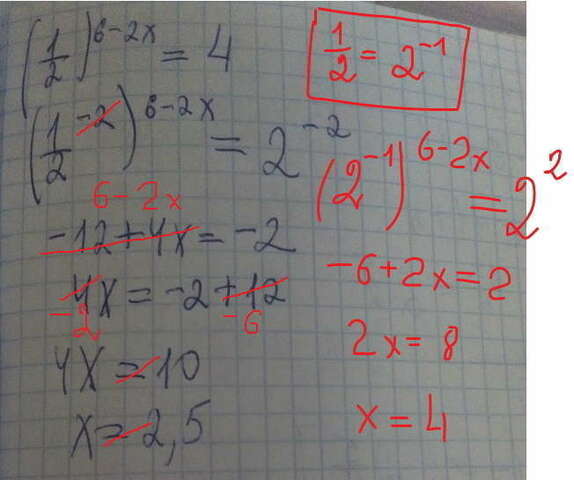 (1/2)^6-2x = 4
(1/2^-2)^6-2x = 2^-2
6-2x
-12+4x = -2
4x = -2+12
-2 -6
4x = 10
x = 2,5
1/2 = 2^-1
(2^-1)^6-2x = 2^2
-6+2x=2
2x = 8
x = 4